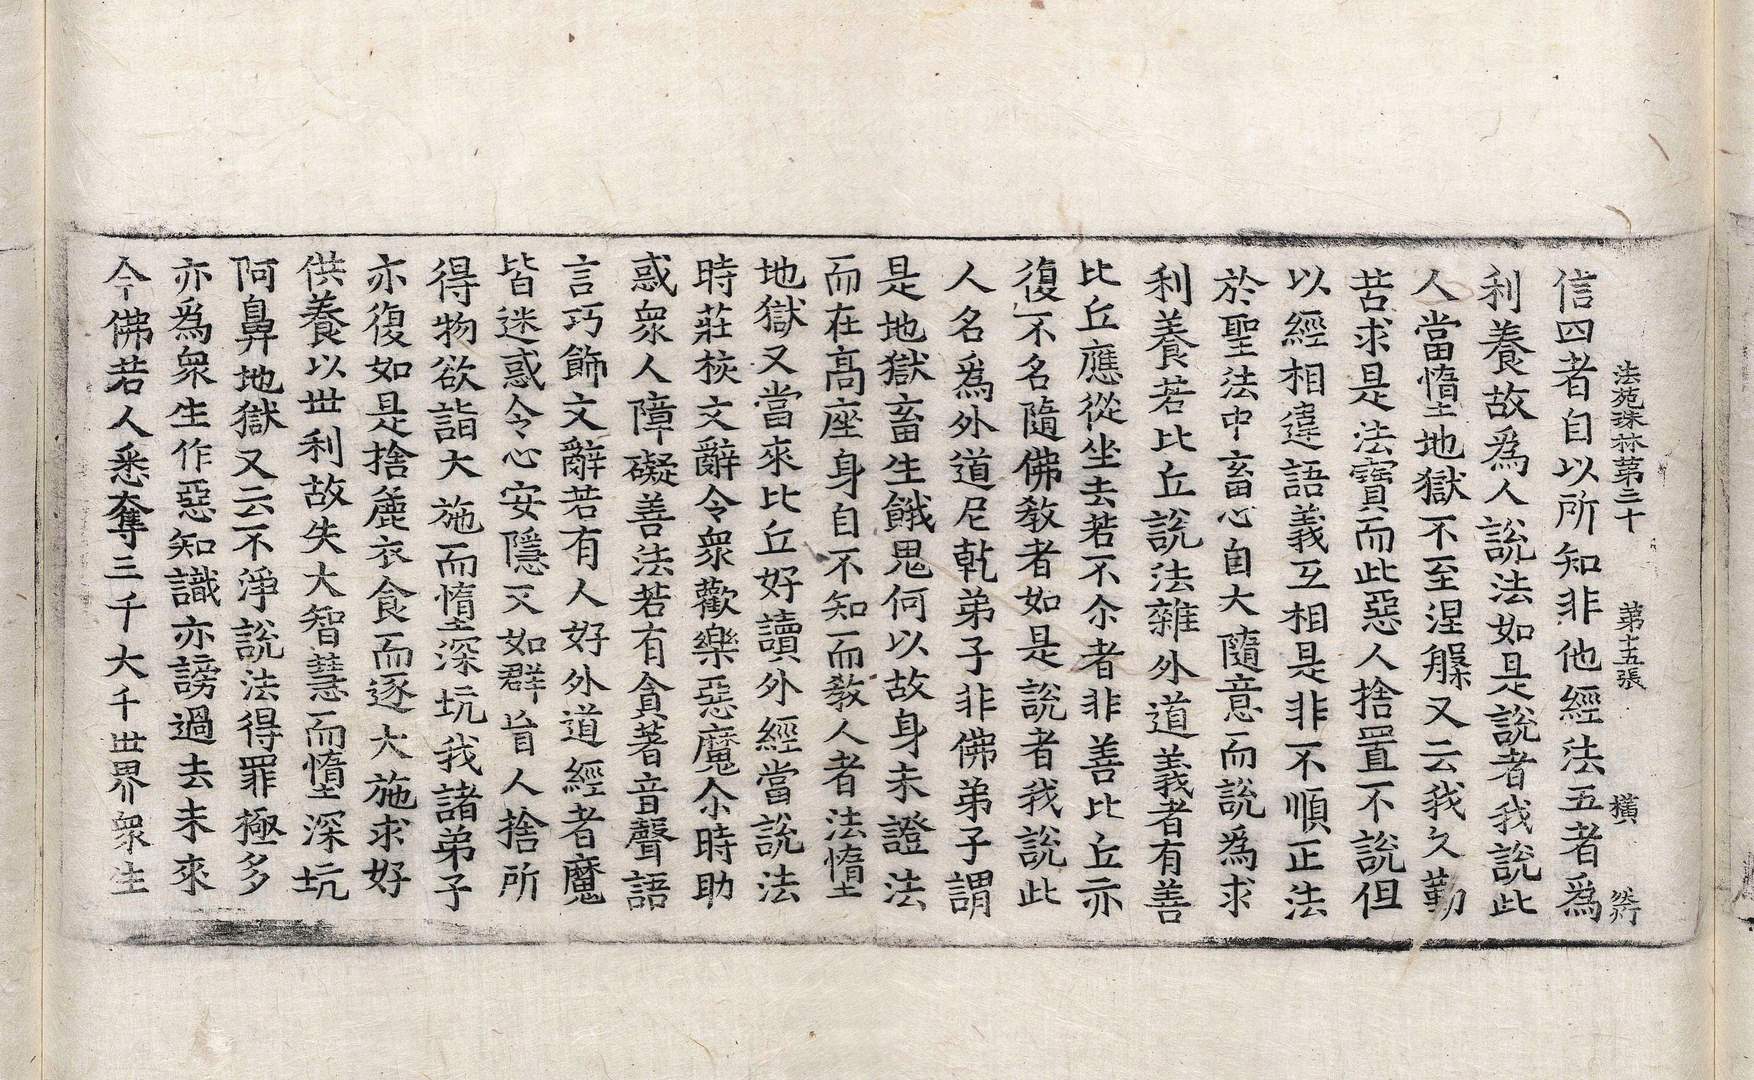 法苑珠林第二十 第十五張 橫
信四者自以所知非他經法五者爲
利養故爲人說法如是說者我說此
人當墮地獄不至涅槃又云我久勤
苦求是法寶而此惡人捨置不說但
以經相違語義互相是非不順正法
於聖法中畜心自大隨意而說爲求
利養若比丘說法雜外道義者有善
比丘應從坐去若不尒者非善比丘亦
復不名隨佛教者如是說者我說此
人名爲外道尼乾弟子非佛弟子謂
是地獄畜生餓鬼何以故身未證法
而在高座身自不知而教人者法墮
地獄又當來比丘好讀外經當說法
時莊挍文辭令衆歡樂惡魔尒時助
惑衆人障礙善法若有貪著音聲語
言巧飾文辭若有人好外道經者魔
皆迷惑令心安隱又如群盲人捨所
得物欲詣大施而墮深坑我諸弟子
亦復如是捨麁衣食而逐大施求好
供養以世利故失大智慧而墮深坑
阿鼻地獄又云不淨說法得罪極多
亦爲衆生作惡知識亦謗過去未來
今佛若人悉奪三千大千世界衆生